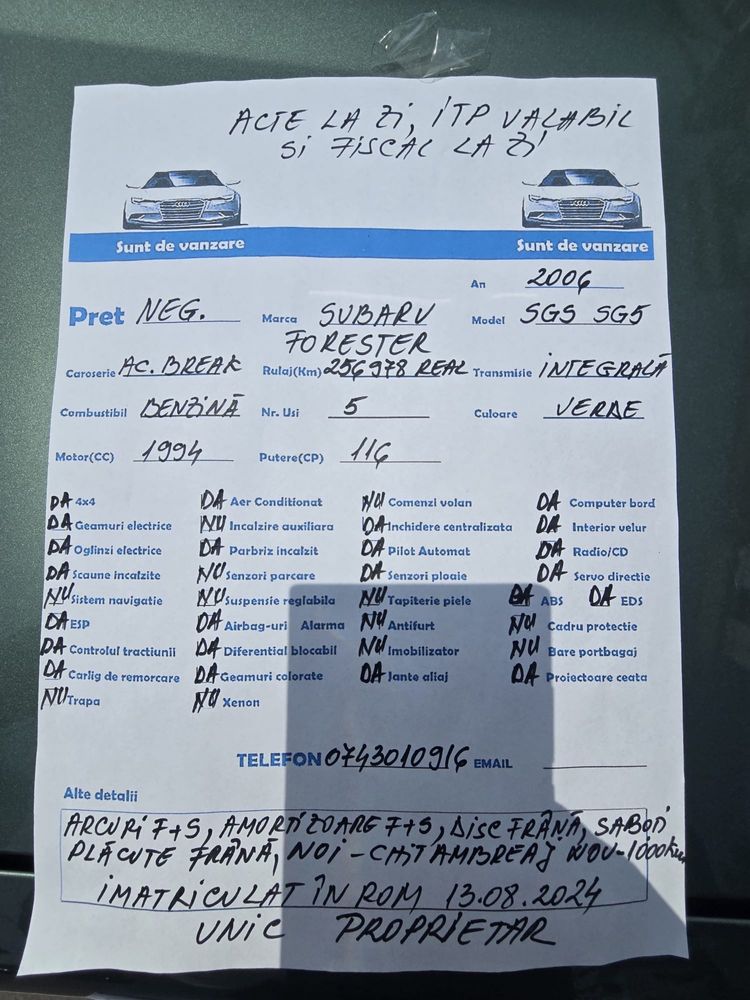 ACTE LA ZI, ITP VALABIL
SI FISCAL LA ZI
Sunt de vanzare Sunt de vanzare
An 2006
Pret NEG. Marca SUBARU Model SGS SG5
FORESTER
Caroserie AC. BREAK Rulaj(Km) 256978 REAL Transmisie INTEGRALĂ
Combustibil BENZINĂ Nr. Usi 5 Culoare VERDE
Motor(CC) 1994 Putere(CP) 116
DA 4x4 DA Aer Conditionat NU Comenzi volan DA Computer bord
DA Geamuri electrice NU Incalzire auxiliara DA Inchidere centralizata DA Interior velur
DA Oglinzi electrice DA Parbriz incalzit DA Pilot Automat DA Radio/CD
DA Scaune incalzite NU Senzori parcare DA Senzori ploaie DA Servo directie
NU Sistem navigatie NU Suspensie reglabila NU Tapiterie piele DA ABS DA EDS
DA ESP DA Airbag-uri Alarma NU Antifurt NU Cadru protectie
DA Controlul tractiunii DA Diferential blocabil NU Imobilizator NU Bare portbagaj
DA Carlig de remorcare DA Geamuri colorate DA Jante aliaj DA Proiectoare ceata
NU Trapa NU Xenon
TELEFON 0743010916 EMAIL
Alte detalii
ARCURI F+S, AMORTIZOARE F+S, DISC FRÂNĂ, SABOȚI
PLĂCUTE FRÂNĂ, NOI - CHIT AMBREAJ NOU - 1000 km
IMATRICULAT ÎN ROM 13.08.2024
UNIC PROPRIETAR